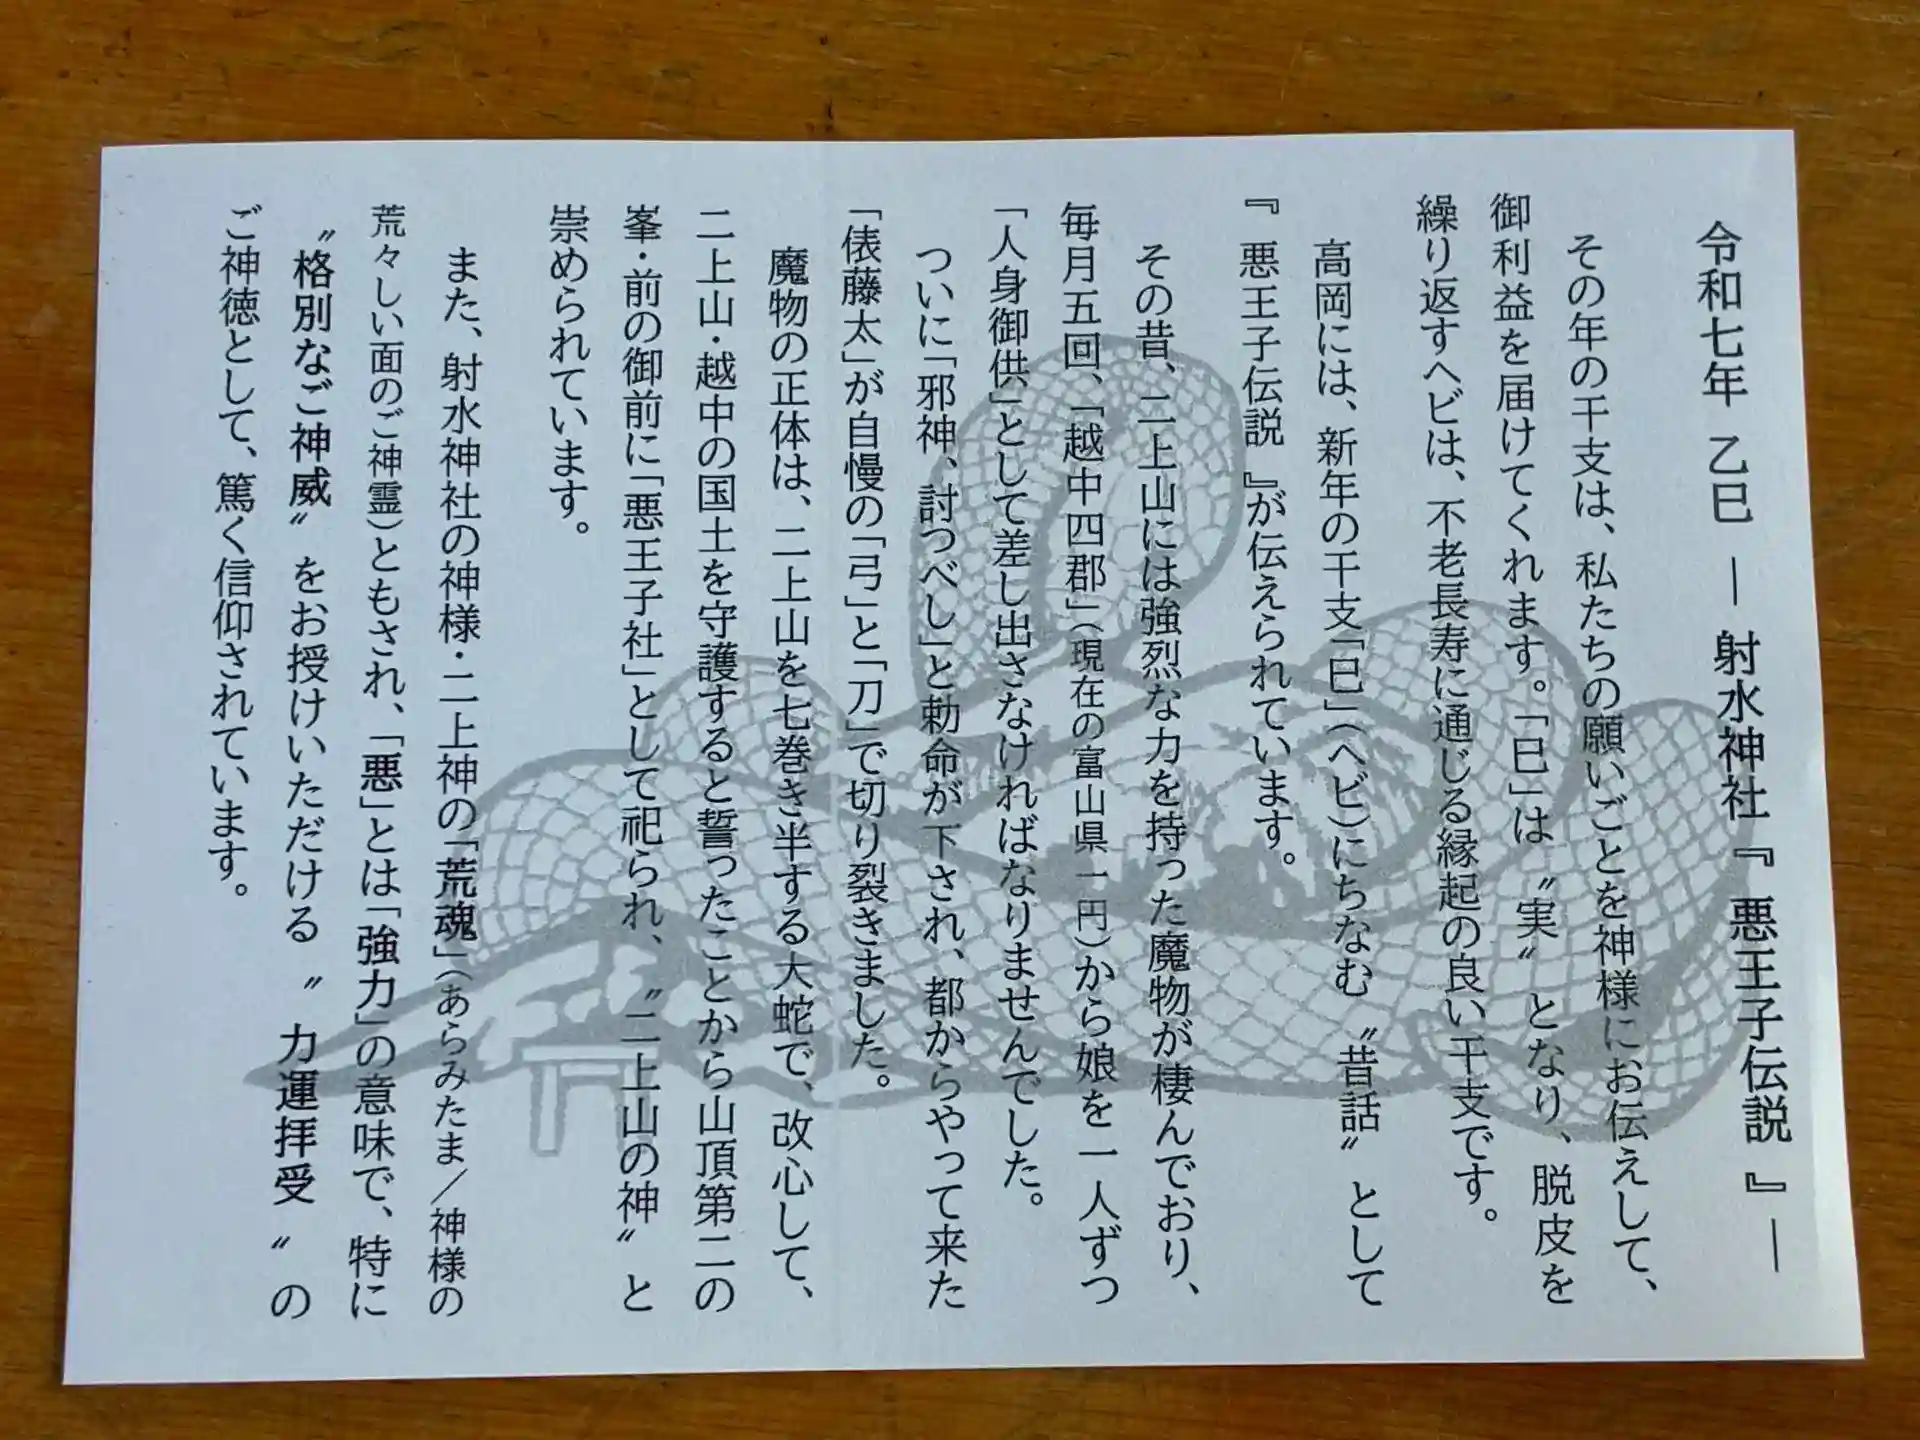 令和七年 乙巳 ― 射水神社『 悪王子伝説 』―
その年の干支は、私たちの願いごとを神様にお伝えして、
御利益を届けてくれます。「巳」は 〝実〟 となり、脱皮を
繰り返すヘビは、不老長寿に通じる縁起の良い干支です。
高岡には、新年の干支「巳」（ヘビ）にちなむ 〝昔話〟 として
『 悪王子伝説 』が伝えられています。
その昔、二上山には強烈な力を持った魔物が棲んでおり、
毎月五回、「越中四郡」（現在の富山県一円）から娘を一人ずつ
「人身御供」として差し出さなければなりませんでした。
ついに「邪神、討つべし」と勅命が下され、都からやって来た
「俵藤太」が自慢の「弓」と「刀」で切り裂きました。
魔物の正体は、二上山を七巻き半する大蛇で、改心して、
二上山・越中の国土を守護すると誓ったことから山頂第二の
峯・前の御前に「悪王子社」として祀られ、〝二上山の神〟 と
崇められています。
また、射水神社の神様・二上神の「荒魂」（あらみたま／神様の
荒々しい面のご神霊）ともされ、「悪」とは「強力」の意味で、特に
〝格別なご神威〟 をお授けいただける 〝 力運拝受 〟 の
ご神徳として、篤く信仰されています。